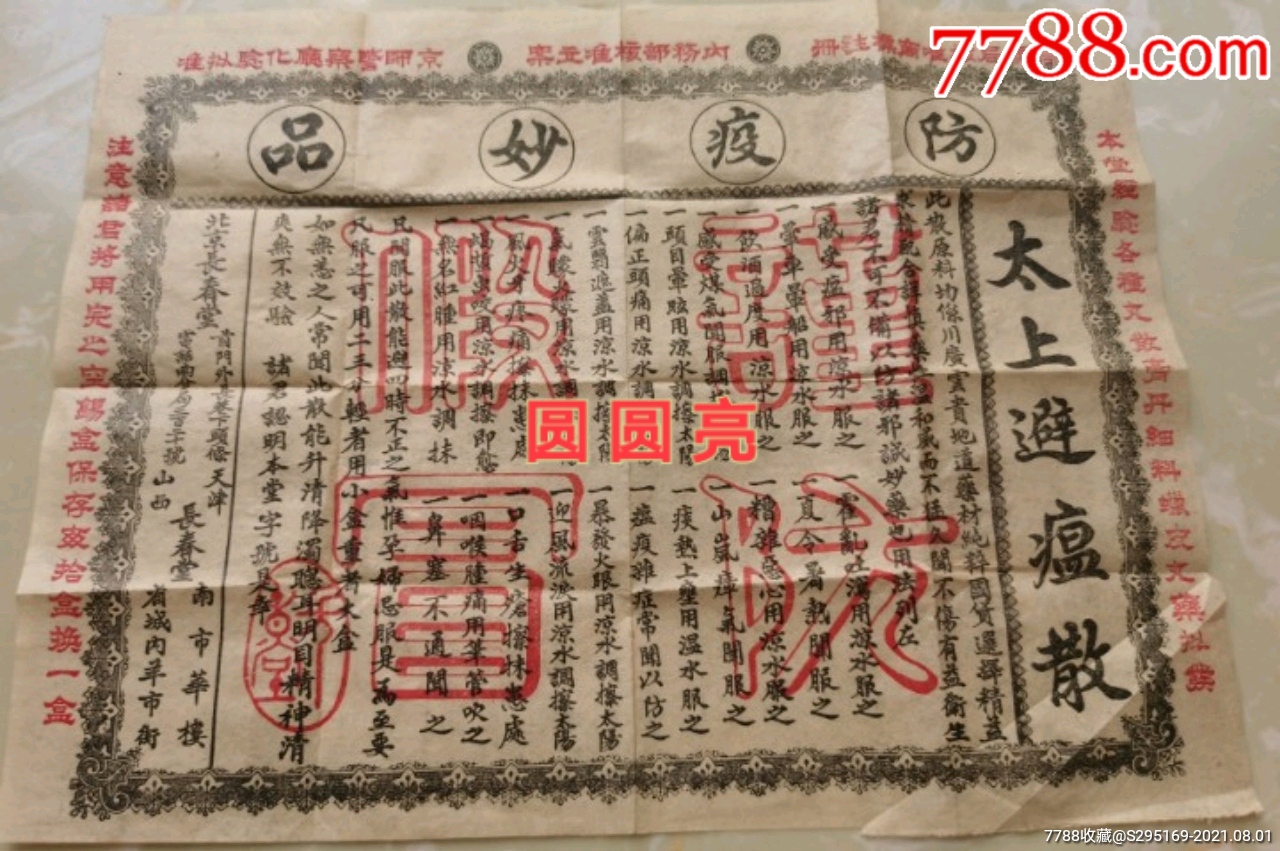 7788.com
京師警察廳化騐批准 內務部核准立案 商標註冊
防疫妙品
太上避瘟散
本堂經驗各種丸散膏丹細料蠟皮丸藥批發
此散原料均係川廣雲貴地道藥材純粹國貨選擇精益
和藏而不佳人聞不傷有益衛生
諸君不可不備以防諸邪誠妙藥也用法列左
一感受瘟邪用涼水服之
一霍亂吐瀉用涼水服之
一暈車暈船用涼水服之
一夏令暑熱聞服之
一飲酒過度用涼水服之
一糟雜惡心用涼水服之
一感受煤氣聞服
一山嵐瘴氣聞服之
一頭目暈眩用涼水服之
一痰熱上壅用温水服之
一偏正頭痛用涼水調擦太陽
一瘟疫雜症常聞以防之
一雲翳遮蓋用涼水調擦太陽
一暴發火眼用涼水調擦太陽
一氣朦眼用涼水調
一迎風流淚用涼水調擦太陽
一風火牙疼痛擦抹患處
一口舌生瘡擦抹患處
用涼水調擦即愈
一咽喉腫痛用筆管吹之
一無名紅腫用涼水調抹
一鼻塞不通聞之
凡聞服此散能避四時不正之氣惟孕婦忌服是爲至要
凡服之可用二三分輕者用小盒重者大盒
如無恙之人常聞此散能升清降濁聰耳明目精神清
爽無不效驗 諸君認明本堂字號是幸
謹防假冒
長春堂
北京長春堂 前門外長巷下頭條
電話南分局
天津
山西
長春堂
南市華樓
省城內羊市街
注意諸君將用完之空錫盒保存玆拾盒換一盒
圆圆亮
7788收藏@S295169-2021.08.01